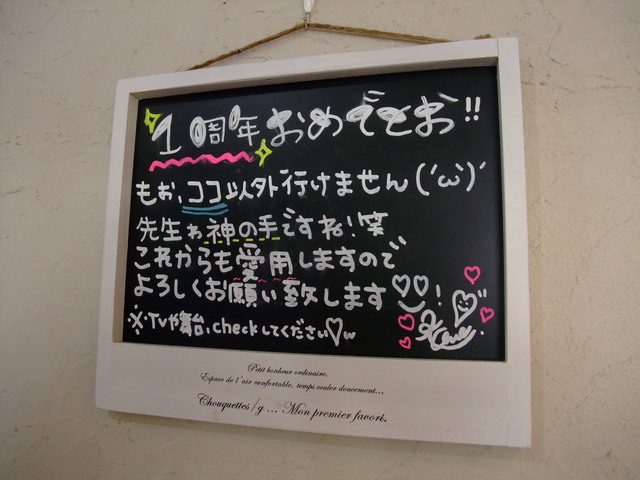 1周年おめでとお!!
もお、ココ以外行けません('ω')
先生ゎ神の手ですね!笑
これからも愛用しますので
よろしくお願い致します♡♡!
※TVや舞台、checkしてください♡w
Petit bonheur ordinaire.
Espace de l'air confortable, temps couler doucement...
Chouquettes/g ... Mon premier favori.